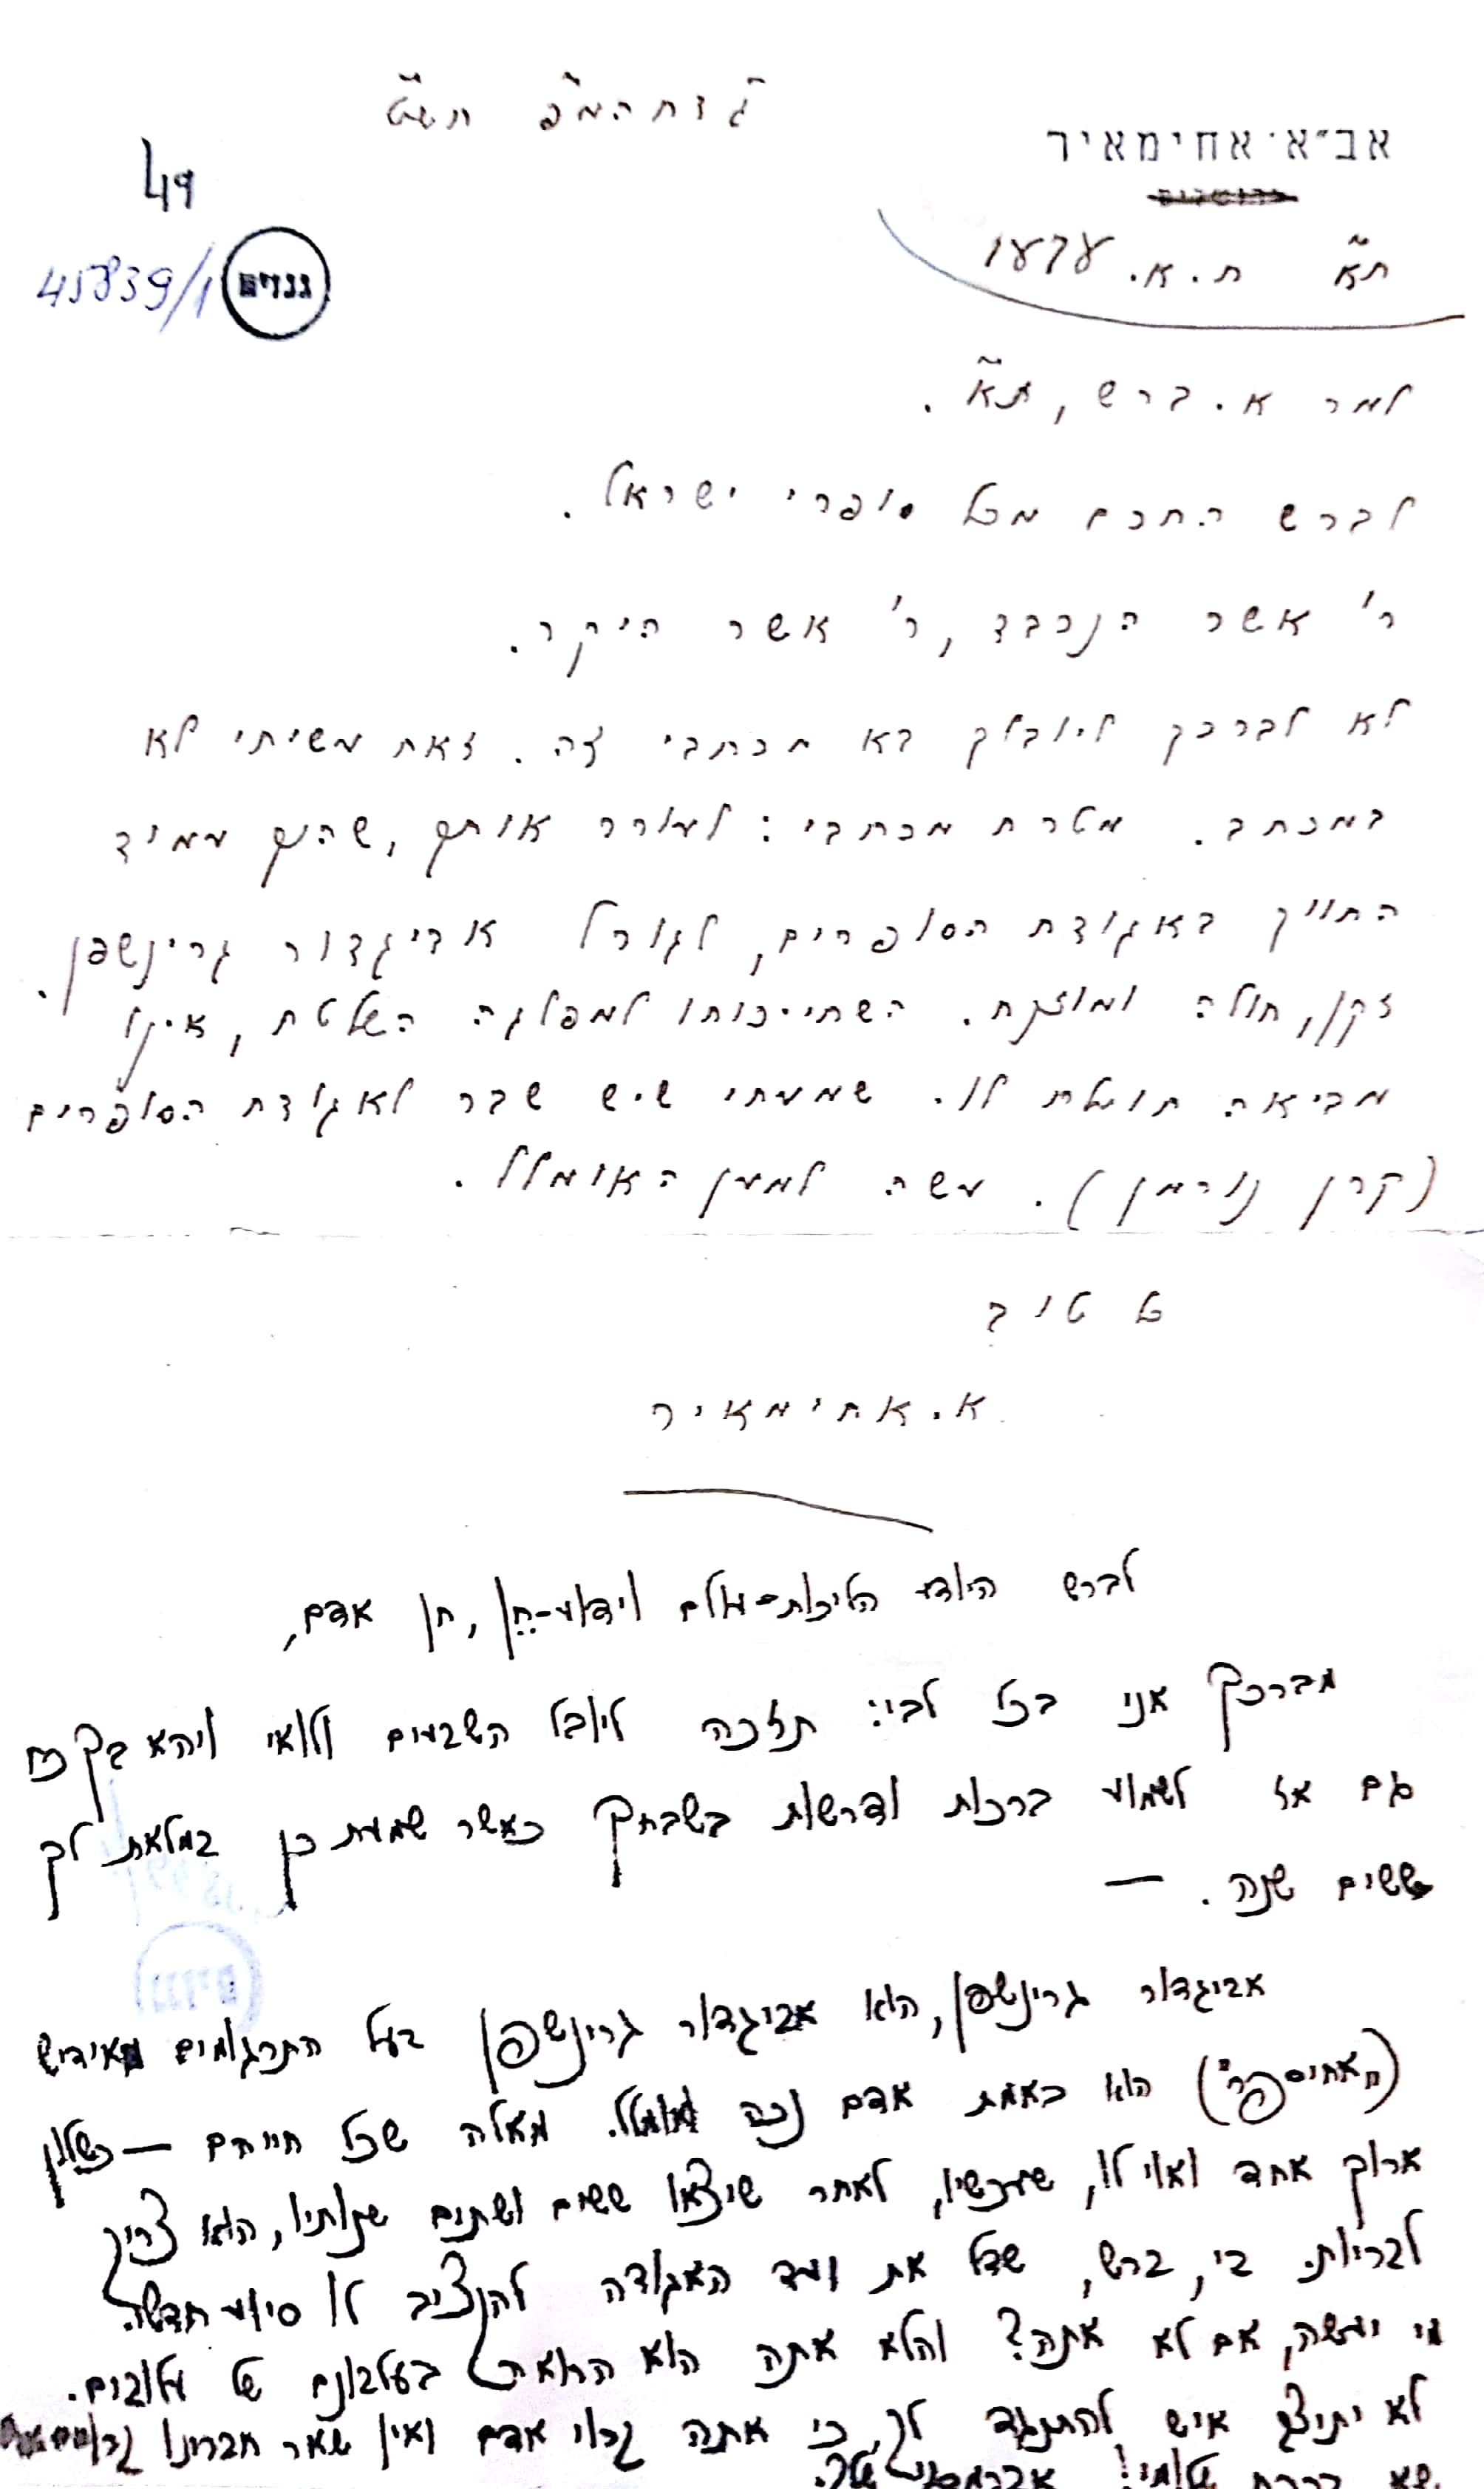 ג' דחהמ"פ תש"ט
אב"א אחימאיר
49
ת"א ת.א.
45839/1 גנזים
למר א. ברש, ת"א.
לברש החכם מכל סופרי ישראל.
ר' אשר הנכבד, ר' אשר היקר.
לא לברכך ליובלך בא מכתבי זה. זאת עשיתי לא
במכתב. מטרת מכתבי: לעורר אותך, שהנך עמוד
התווך באגודת הסופרים, לגורל אביגדור גרינשפן.
זקן, חולה ומוזנח. השתייכותו למפלגה השלטת, אינו
מביאה תועלת לו. שמעתי שיש שבר לאגודת הסופרים
(קרן נורמן). עשה למען האומלל.
כל טוב
א. אחימאיר
לברש היודע הליכות-עולם ויודע-חן, חן אדם,
מברכך אני בכל לבי: תזכה ליובל השבעים ולואי ויהא בך כח
גם אז לשמוע ברכות ודרשות בשבחך כאשר שמעת כן במלאת לך
ששים שנה. —
אביגדור גרינשפן, הוא אביגדור גרינשפן בעל התרגומים מאידיש
הוא באמת אדם נכה אומלל. מאלה שכל חייהם — כשלון
ארוך אחד ואוי לו, שעכשיו, לאחר שיצאו ששים ושתים שנותיו, הוא צריך
לבריות. בי, ברש, שדל את ועד האגודה להקציב לו סיוע חדשי.
מי יעשה, אם לא אתה? והלא אתה הוא הרואה בעלבונם של עלובים.
לא יתיצב איש להתנגד לך, כי אתה גלוי אדם ואין שאר חברינו
שא ברכת שלומי!